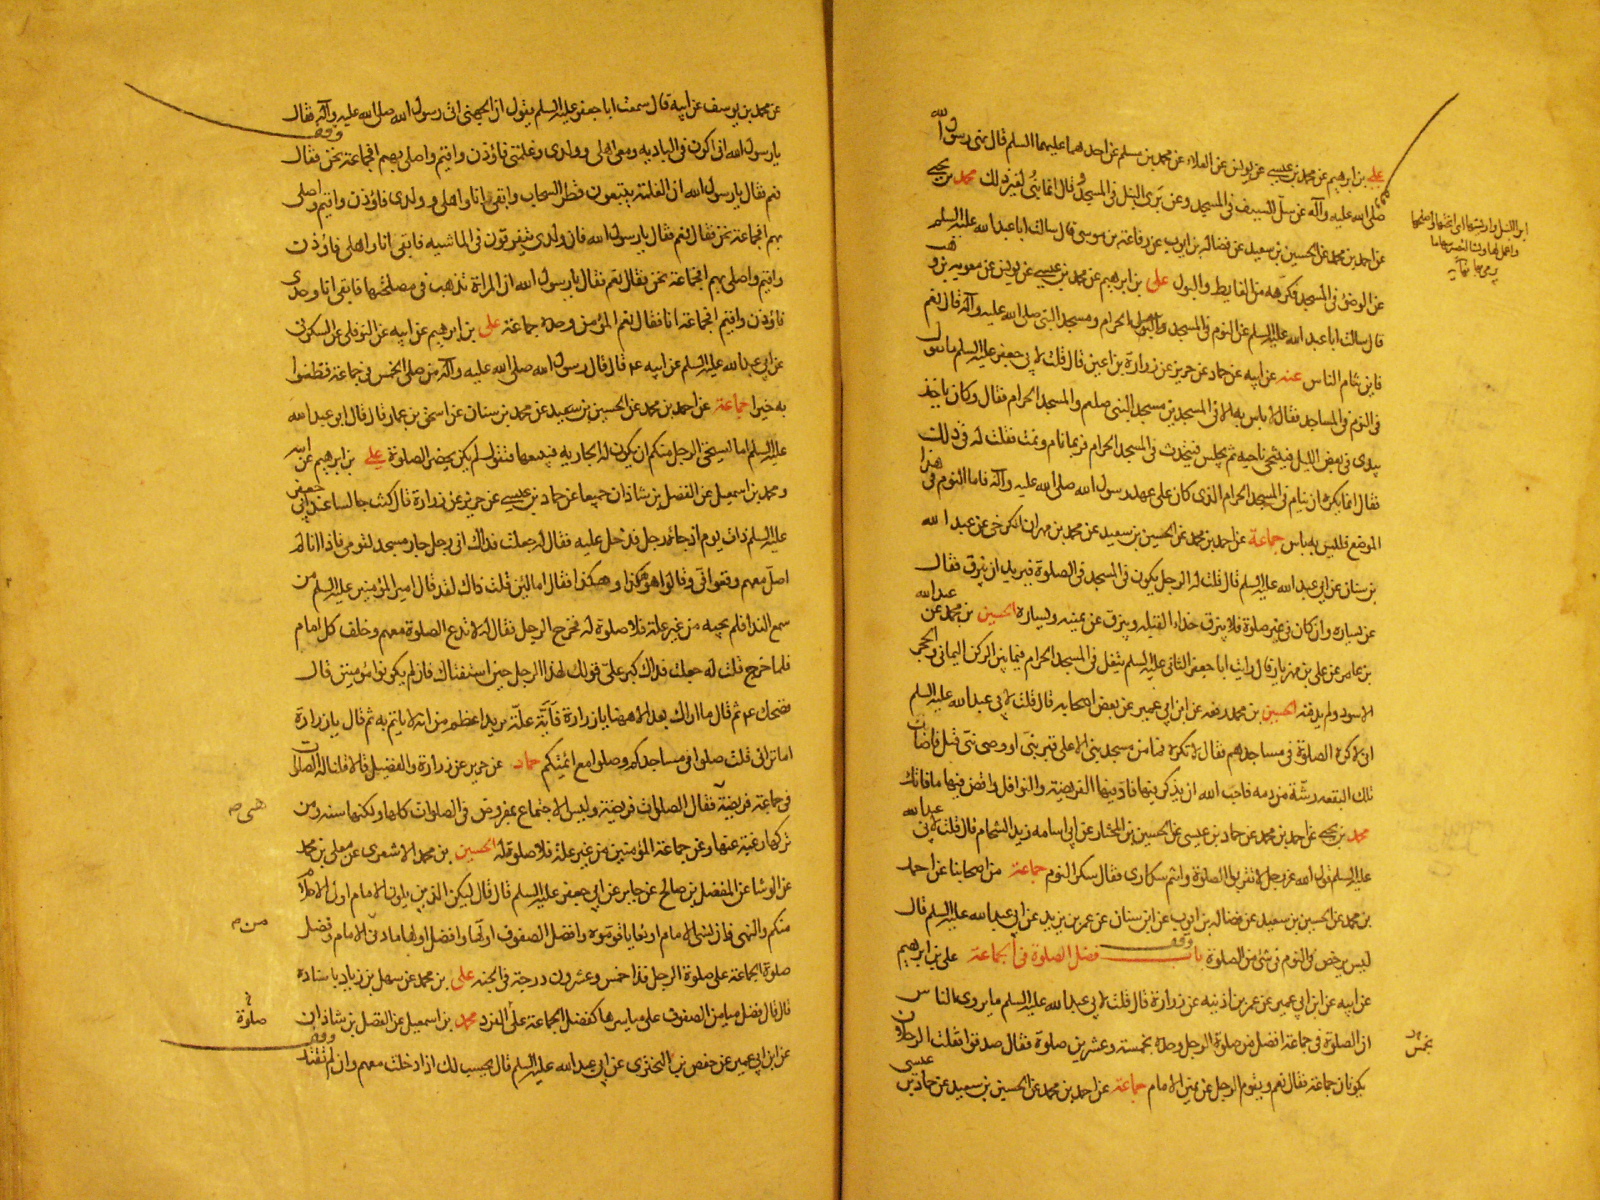 علي بن ابرهيم عن محمد بن عيسى عن يونس عن العلاء عن محمد بن مسلم عن احدهما عليهما السلم قال نهى رسول الله
صلى الله عليه وآله عن سلّ السيف في المسجد وعن برى النبل في المسجد وقال انما بُنى لغير ذلك محمد بن يحيى
عن احمد بن محمد عن الحسين بن سعيد عن فضالة بن ايوب عن رفاعة بن موسى قال سالت ابا عبد الله عليه السلم
عن الوضوء في المسجد فكرهه من الغايط والبول علي بن ابرهيم عن محمد بن عيسى عن يونس عن معوية بن وهب
قال سالت ابا عبد الله عليه السلم عن النوم في المسجد الحرام ومسجد النبى صلى الله عليه وآله قال نعم
فاين ينام الناس عنه عن ابيه عن حماد عن حريز عن زرارة بن اعين قال قلت لابي جعفر عليه السلم ما تقول
في النوم في المساجد فقال لا باس به الا في المسجدين مسجد النبى صلعم والمسجد الحرام فقال وكان ياخذ
بيدى في بعض الليل فيتنحى ناحيه ثم يجلس فيتحدث في المسجد الحرام فربما نام ونمت فقلت له في ذلك
فقال انما يكره ان ينام في المسجد الحرام الذى كان على عهد رسول الله صلى الله عليه وآله فاما النوم في هذا
الموضع فليس به باس جماعة عن احمد بن محمد عن الحسين بن سعيد عن محمد بن مهران الكرخى عن عبد الله
بن سنان عن ابي عبد الله عليه السلم قال قلت له الرجل يكون في المسجد في الصلوة فيريد ان يبزق فقال
عن يساره وان كان في غير صلوة فلا يبزق حذاء القبلة ويبزق عن يمينه ويساره الحسين بن محمد عن عبد الله
بن عامر عن علي بن مهزيار قال رايت ابا جعفر الثاني عليه السلم يتفل في المسجد الحرام فيما بين الركن اليمانى والحجر
الاسود ولم يدفنه الحسين بن محمد رفعه عن ابن ابي عمير عن بعض اصحابه قال قلت لابي عبد الله عليه السلم
انى لاكره الصلوة في مساجدهم فقال لا تكره فما من مسجد بنى الا على قبر نبى او وصى نبى قتل فاصاب
تلك البقعه رشّة من دمه فاحب الله ان يذكر فيها فادّ فيها الفريضة والنوافل واقض فيها ما فاتك
محمد بن يحيى عن احمد بن محمد عن حماد بن عيسى عن الحسين بن المختار عن ابي اسامه زيد الشحام قال قلت لابي عبد الله
عليه السلم قول الله عز وجل لا تقربوا الصلوة وانتم سكارى فقال سكر النوم جماعة من اصحابنا عن احمد
بن محمد عن الحسين بن سعيد عن فضاله بن ايوب عن ابن سنان عن عمر بن يزيد عن ابي عبد الله عليه السلم قال
ليس يرخص في النوم في شئ من الصلوة باب فضل الصلوة في الجماعة علي بن ابرهيم
عن ابيه عن ابن ابي عمير عن عمر بن اذينه عن زرارة قال قلت لابي عبد الله عليه السلم ما يروى الناس
ان الصلوة في جماعة افضل من صلوة الرجل وحده بخمسة وعشرين صلوة فقال صدقوا فقلت الرجلان
يكونان جماعة فقال نعم ويقوم الرجل عن يمين الامام جماعة عن احمد بن محمد عن الحسين بن سعيد عن حماد بن عيسى
عن محمد بن يوسف عن ابيه قال سمعت ابا جعفر عليه السلم يقول ان الجهنى اتى رسول الله صلى الله عليه وآله فقال
يا رسول الله انى اكون في الباديه ومعى اهلى وولدى وغلمتى فاؤذن واقيم واصلى بهم افجماعة نحن فقال
نعم فقال يا رسول الله ان الغلمة يتبعون قطر السحاب وابقى انا واهلى وولدى فاؤذن واقيم واصلى
بهم افجماعة نحن فقال نعم فقال يا رسول الله فان ولدى يتفرقون في الماشيه فابقى انا واهلى فاؤذن
واقيم واصلى بهم افجماعة نحن فقال نعم فقال يا رسول الله ان المراة تذهب في مصلحتها فابقى انا وحدى
فاؤذن واقيم افجماعة انا فقال نعم المؤمن وحده جماعة علي بن ابرهيم عن ابيه عن النوفلى عن السكونى
عن ابي عبد الله عليه السلم عن ابيه ع قال قال رسول الله صلى الله عليه وآله من صلى الخمس في جماعة فظنوا
به خيرا جماعة عن احمد بن محمد عن الحسين بن سعيد عن محمد بن سنان عن اسحق بن عمار قال قال ابو عبد الله
عليه السلم اما يستحى الرجل منكم ان يكون له الجاريه فيبيعها فتقول لم يكن يحضر الصلوة علي بن ابرهيم عن ابيه
ومحمد بن اسمعيل عن الفضل بن شاذان جميعا عن حماد بن عيسى عن حريز عن زرارة قال كنت جالسا عند ابي جعفر
عليه السلم ذات يوم اذ جاءه رجل فدخل عليه فقال له جعلت فداك انى رجل جار مسجد لقومى فاذا انا لم
اصل معهم وقعوا فيّ وقالوا هو هكذا وهكذا فقال اما لئن قلت ذاك لقد قال امير المؤمنين عليه السلم من
سمع النداء فلم يجبه من غير علة فلا صلوة له فخرج الرجل فقال له لا تدع الصلوة معهم وخلف كل امام
فلما خرج قلت له جعلت فداك كبر عليّ قولك لهذا الرجل حين استفتاك فان لم يكونوا مؤمنين قال
فضحك ع ثم قال ما اراك بعد الا ههنا يا زرارة فأيّة علّة يريد اعظم من انه لا ياتم به ثم قال يا زرارة
اما ترانى قلت صلوا في مساجدكم وصلوا مع ائمتكم حماد عن حريز عن زرارة والفضيل قالا قلنا له الصلوات
في جماعة فريضة فقال الصلوات فريضة وليس الاجتماع بمفروض في الصلوات كلها ولكنها سنه ومن
تركها رغبة عنها وعن جماعة المؤمنين من غير علة فلا صلوة له الحسين بن محمد الاشعرى عن معلى بن محمد
عن الوشا عن المفضل بن صالح عن جابر عن ابي جعفر عليه السلم قال قال ليكن الذين يلون الامام اولى الاحلام
منكم والنهى فان نسى الامام او تعايا قوّموه وافضل الصفوف اولها وافضل اولها ما دنى الامام وفضل
صلوة الجماعة على صلوة الرجل فذا خمس وعشرون درجة في الجنة علي بن محمد عن سهل بن زياد باسناده
قال قال فضل ميامن الصفوف على مياسرها كفضل الجماعة على الفرد محمد بن اسمعيل عن الفضل بن شاذان
عن ابن ابي عمير عن حفص بن البخترى عن ابي عبد الله عليه السلم قال يحسب لك اذا دخلت معهم وان لم تقتد
صلوة